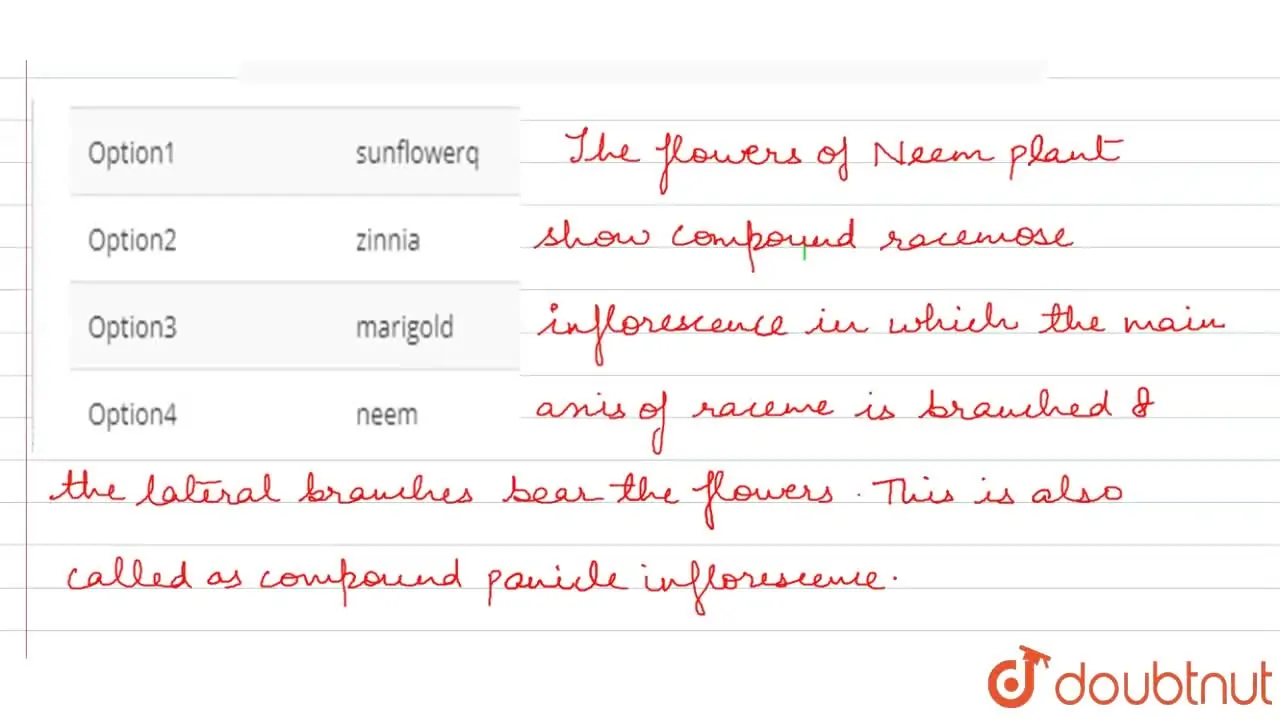 Option1 sunflowerq
Option2 zinnia
Option3 marigold
Option4 neem
The flowers of Neem plant
show compound racemose
inflorescence in which the main
axis of raceme is branched &
the lateral branches bear the flowers. This is also
called as compound panicle inflorescence.
doubtnut